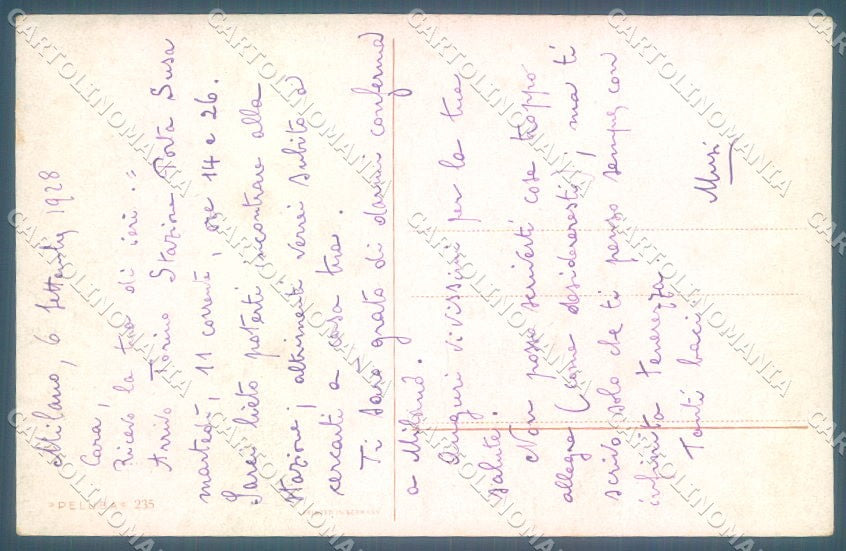 Milano, 6 Settembre 1928
Cara,
Ricevo la tua di ieri. =
Arrivo Torino Stazione Porta Susa
martedì, 11 corrente, ore 14 e 26.
Sarei lieto poterti incontrare alla
stazione; altrimenti verrei subito a
cercarti a casa tua.
Ti sarò grato di darmi conferma
a Milano.
Auguri vivissimi per la tua
salute.
Non posso scriverti cose troppo
allegre (come desidereresti); ma ti
scrivo solo che ti penso sempre con
infinita tenerezza.
Tanti baci
Musi
»PELUBA« 235
PRINTED IN GERMANY
CARTOLINOMANIA